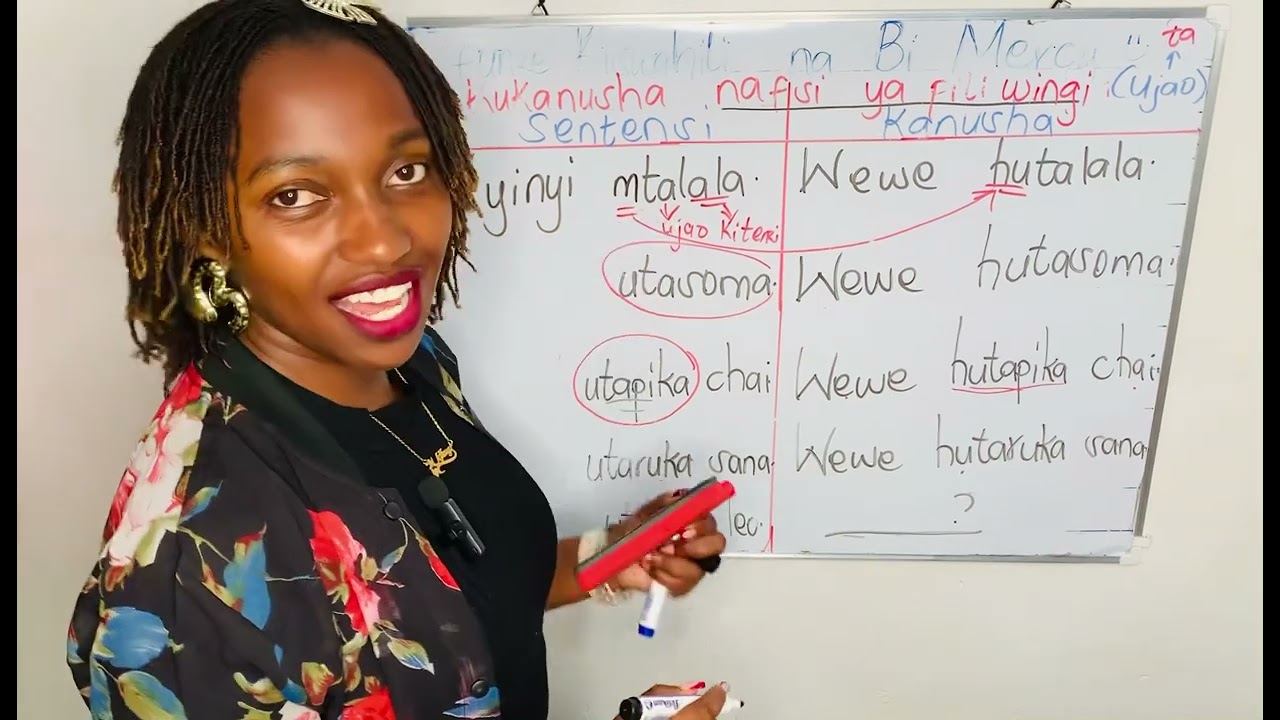 Kiswahili na Bi Mercy " ta
Kukanusha nafisi ya fili wingi (Ujao)
Sentensi Kanusha
yinyi mtalala. Wewe hutalala.
ujao Kitenzi
utasoma. Wewe hutasoma.
utapika chai Wewe hutapika chai.
utaruka sana. Wewe hutaruka sana
leo. ?